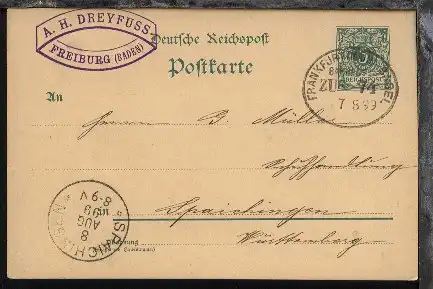 A. H. DREYFUSS.
FREIBURG (BADEN)
Deutsche Reichspost
Postkarte
FRANKFURT BASEL
ZUG 74
7 8 99
An
Herrn J. Müller
Schuhhandlung
in Spaichingen
Wohnung
Württemberg
SPAICHINGEN
8
AUG
99
8-9 V